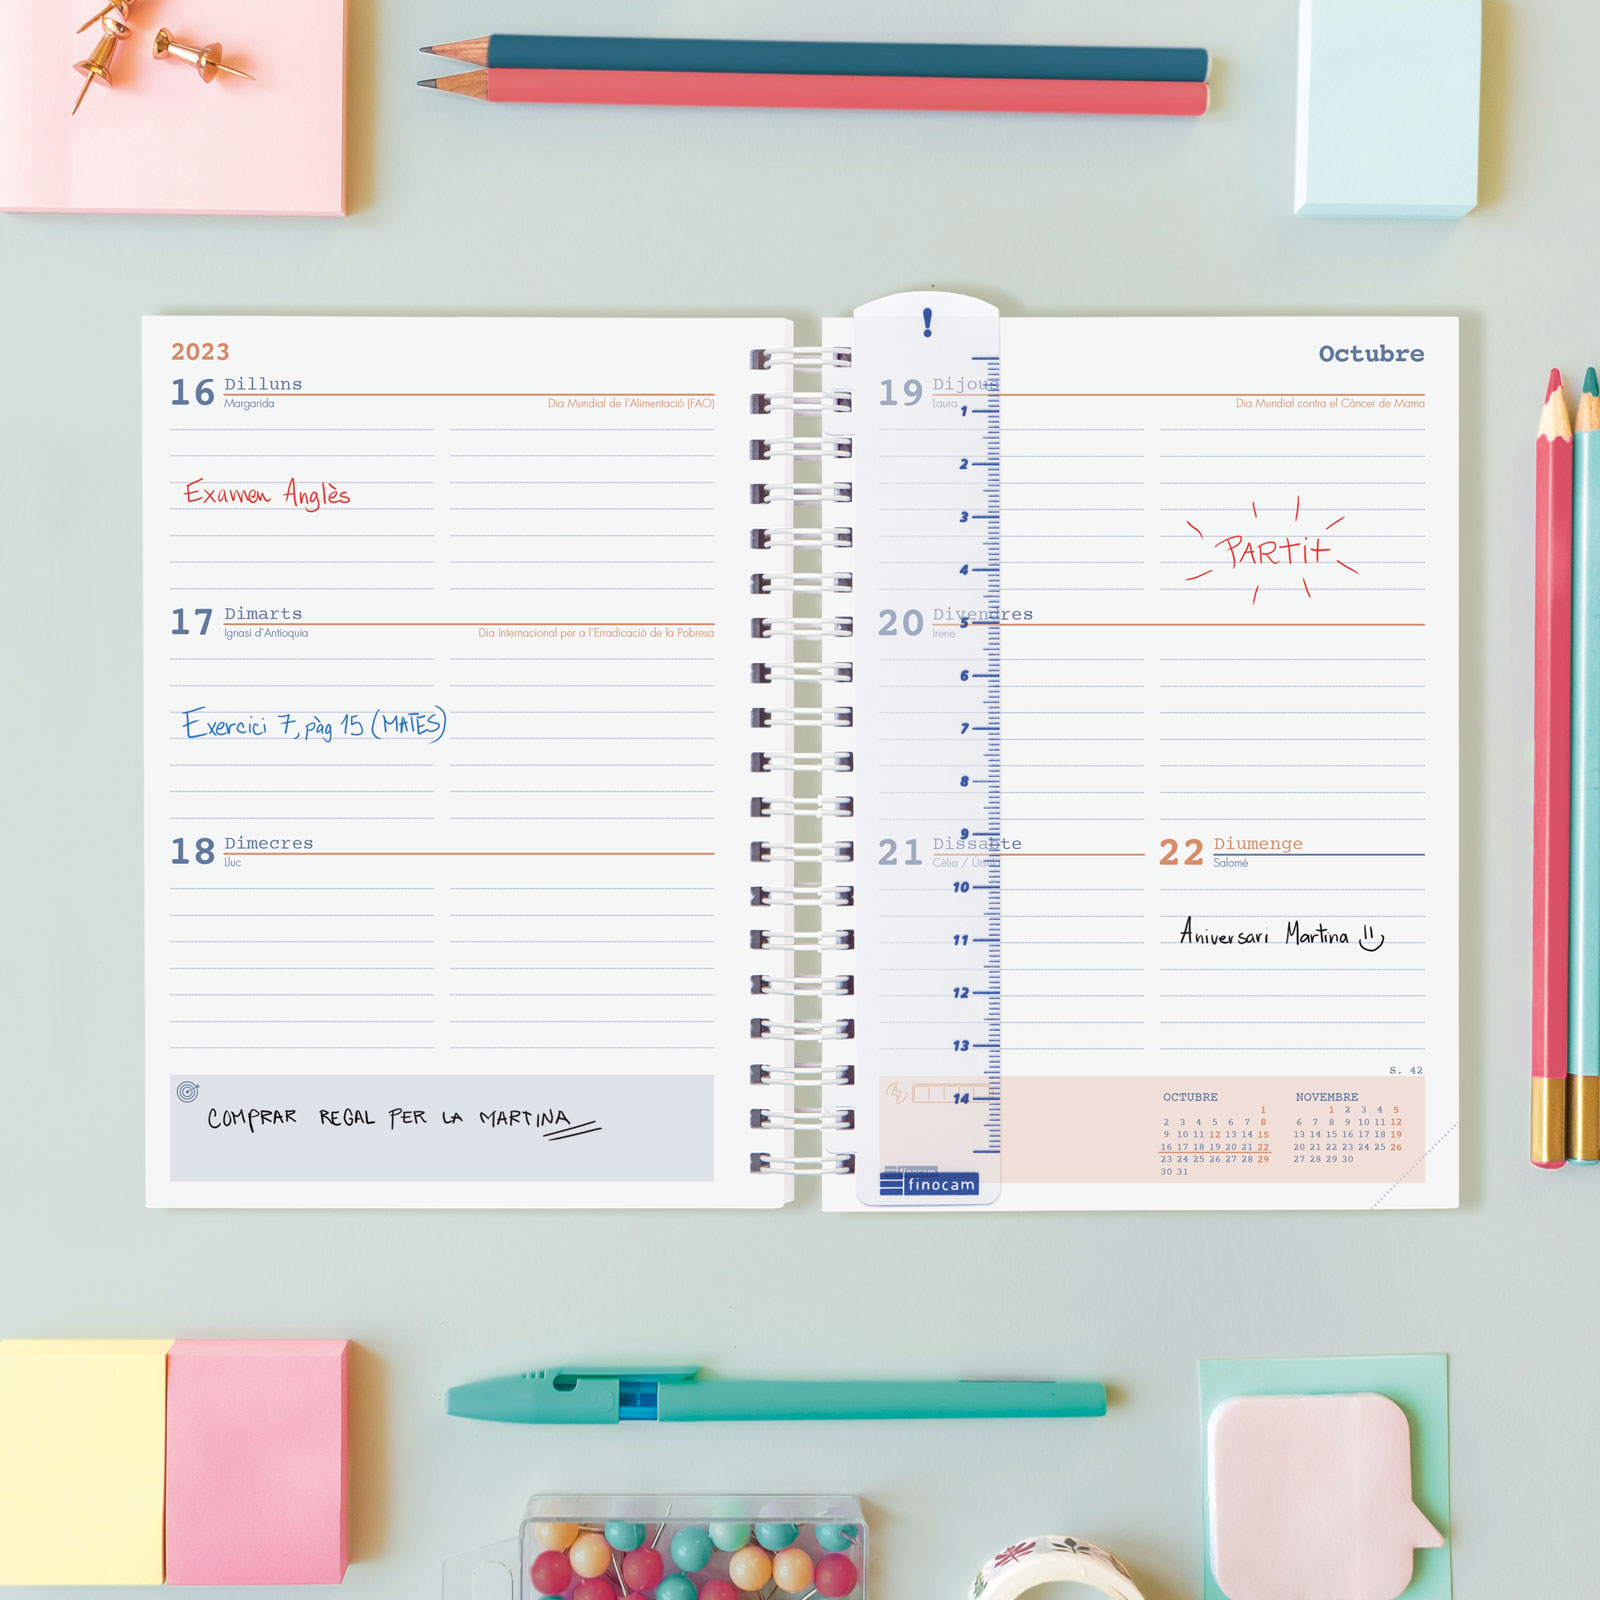 2023
16 Dilluns
Margarida Dia Mundial de l'Alimentació (FAO)
Examen Anglès
17 Dimarts
Ignasi d'Antioquia Dia Internacional per a l'Erradicació de la Pobresa
Exercici 7, pàg 15 (MATES)
18 Dimecres
Lluc
COMPRAR REGAL PER LA MARTINA
Octubre
!
19 Dijous
Laura Dia Mundial contra el Càncer de Mama
PARTIT
20 Divendres
Irene
21 Dissabte
Cèlia / Úrsula
22 Diumenge
Salomé
Aniversari Martina
1
2
3
4
5
6
7
8
9
10
11
12
13
14
finocam
S. 42
OCTUBRE
1
2 3 4 5 6 7 8
9 10 11 12 13 14 15
16 17 18 19 20 21 22
23 24 25 26 27 28 29
30 31
NOVEMBRE
1 2 3 4 5
6 7 8 9 10 11 12
13 14 15 16 17 18 19
20 21 22 23 24 25 26
27 28 29 30